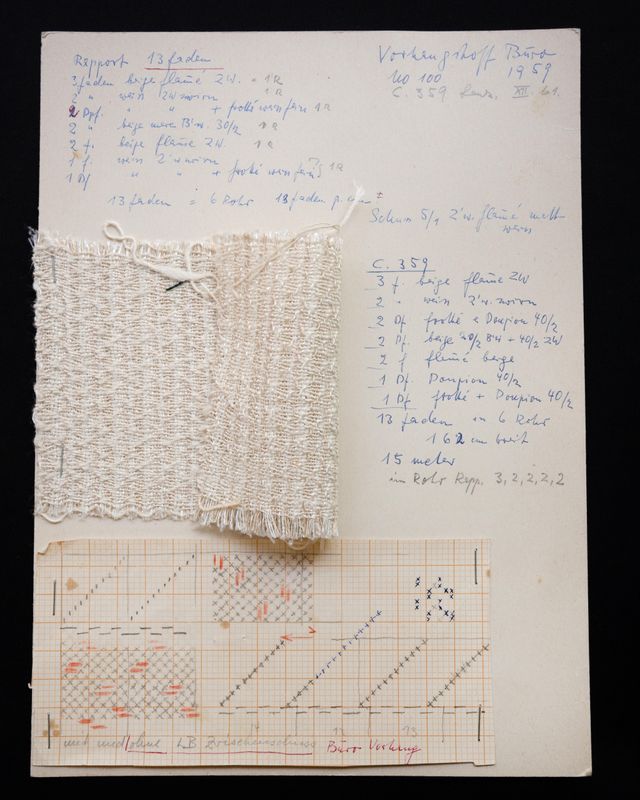 Rapport 13 faden
3 faden beige flamé ZW. = 1R
2 " weiss ZW zwirn 1R
2 Dpf. " " + frotté 1R
2 " beige 30/2 1R
2 f. beige flamé ZW. 1R
1 f. weiss Z'w zwirn
1 Df " " + frotté 1R
13 faden = 6 Rohr 13 faden p. cm ±
Vorhangstoff Büro
No 100 1959
C. 359 XII. 61.
Schuss 5/1 Z'w. flamé matt
weiss
C. 359
3 f. beige flamé ZW
2 " weiss Z'w. zwirn
2 Df. frotté + Doupion 40/2
2 Df. beige + 40/2 ZW
2 f flamé beige
1 Df. Doupion 40/2
1 Df frotté + Doupion 40/2
13 faden in 6 Rohr
162 cm breit
15 meter
im Rohr Rapp. 3, 2, 2, 2, 2
13 13
mit und ohne LB Zwischenschuss Büro Vorhang